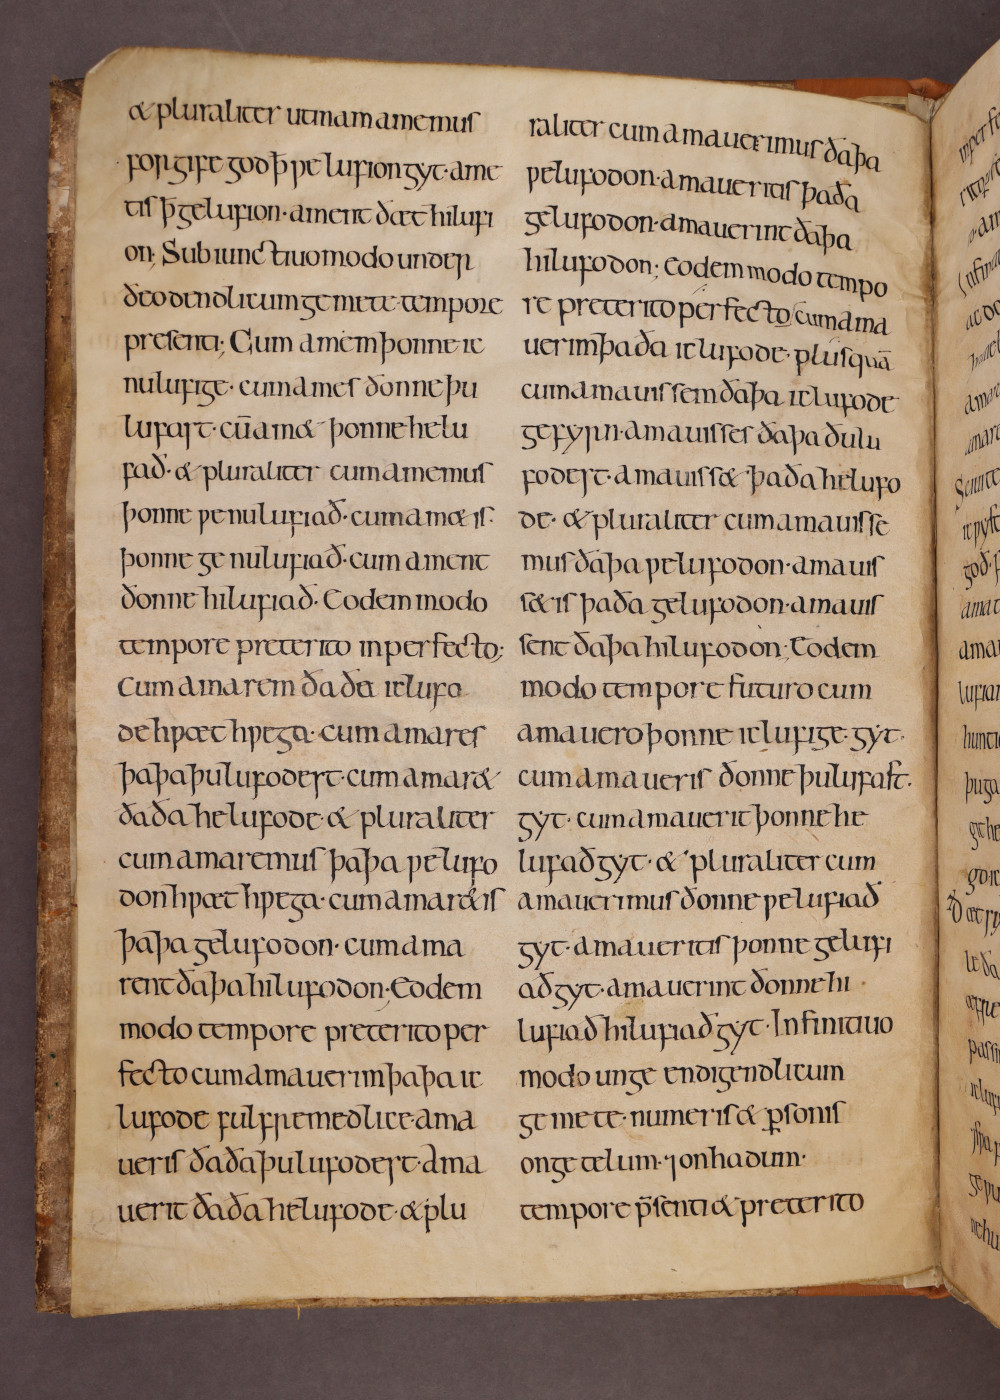 & pluraliter utinam amemus
forgife god þ̄ ƿe lufion gyt· ame
tis þ̄ ge lufion· ament ðæt hi lufi
on; Subiunctiuo modo under
ðeodendlicum gemete· tempore
presenti; Cum amem þonne ic
nu lufige· cum ames ðonne þu
lufast· cū am& þonne he lu
fað· & pluraliter cum amemus
þonne ƿe nu lufiað· cum am&is·
þonne ge nu lufiað· cum ament
ðonne hi lufiað· Eodem modo
tempore preterito inperfecto;
Cum amarem ða ða ic lufo
de hƿæt hƿega· cum amares
þa þa þu lufodest· cum amar&
ða ða he lufode· & pluraliter
cum amaremus þa þa ƿe lufo
don hƿæt hƿega· cum amar&is
þa þa ge lufodon· cum ama
rent ða þa hi lufodon; Eodem
modo tempore preterito per
fecto cum amauerim þa þa ic
lufode fulfremedlice· ama
ueris ða ða þu lufodest· Ama
uerit ða ða he lufode· & plu
raliter cum amauerimus ða þa
ƿe lufodon· amaueritis þa ða
ge lufodon· amauerint ða þa
hi lufodon; Eodem modo tempo
re preterito perfecto cum ama
uerim þa ða ic lufode· plusquā
cum amauissem ða þa ic lufode
gefyrn· amauisses ða þa ðu lu
fodest· amauiss& þa ða he lufo
de· & pluraliter cum amauisse
mus ða þa ƿe lufodon· amauis
s&is þa ða ge lufodon· amauis
sent ða þa hi lufodon; Eodem
modo tempore futuro cum
amauero þonne ic lufige· gyt·
cum amaueris ðonne þu lufast·
gyt· cum amauerit þonne he
lufað gyt· & pluraliter cum
amauerimus ðonne ƿe lufiað
gyt· amaueritis þonne ge lufi
að gyt· amauerint ðonne hi
lufiað hi lufiað gyt· Infinitiuo
modo ungeendigendlicum
gemete· numeris & ꝑsonis
on getelum· ⁊ on hadum·
tempore p̄senti & preterito